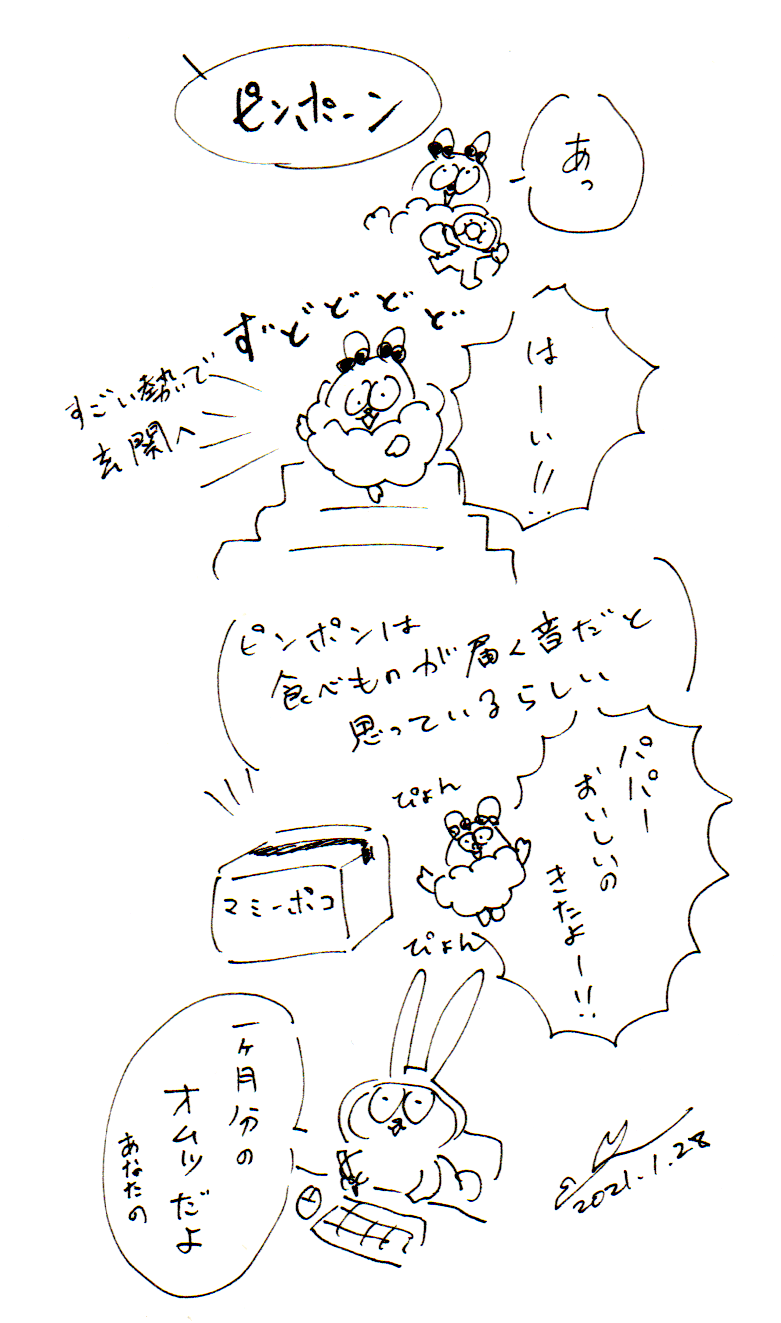 ピンポーン
あっ
ずどどどど
すごい勢いで
玄関へ
はーい!!
ピンポンは
食べものが届く音だと
思っているらしい
パパー
おいしいの
きたよー!!
ぴょん
ぴょん
マミーポコ
一ヶ月分の
オムツだよ
あなたの
2021.1.28